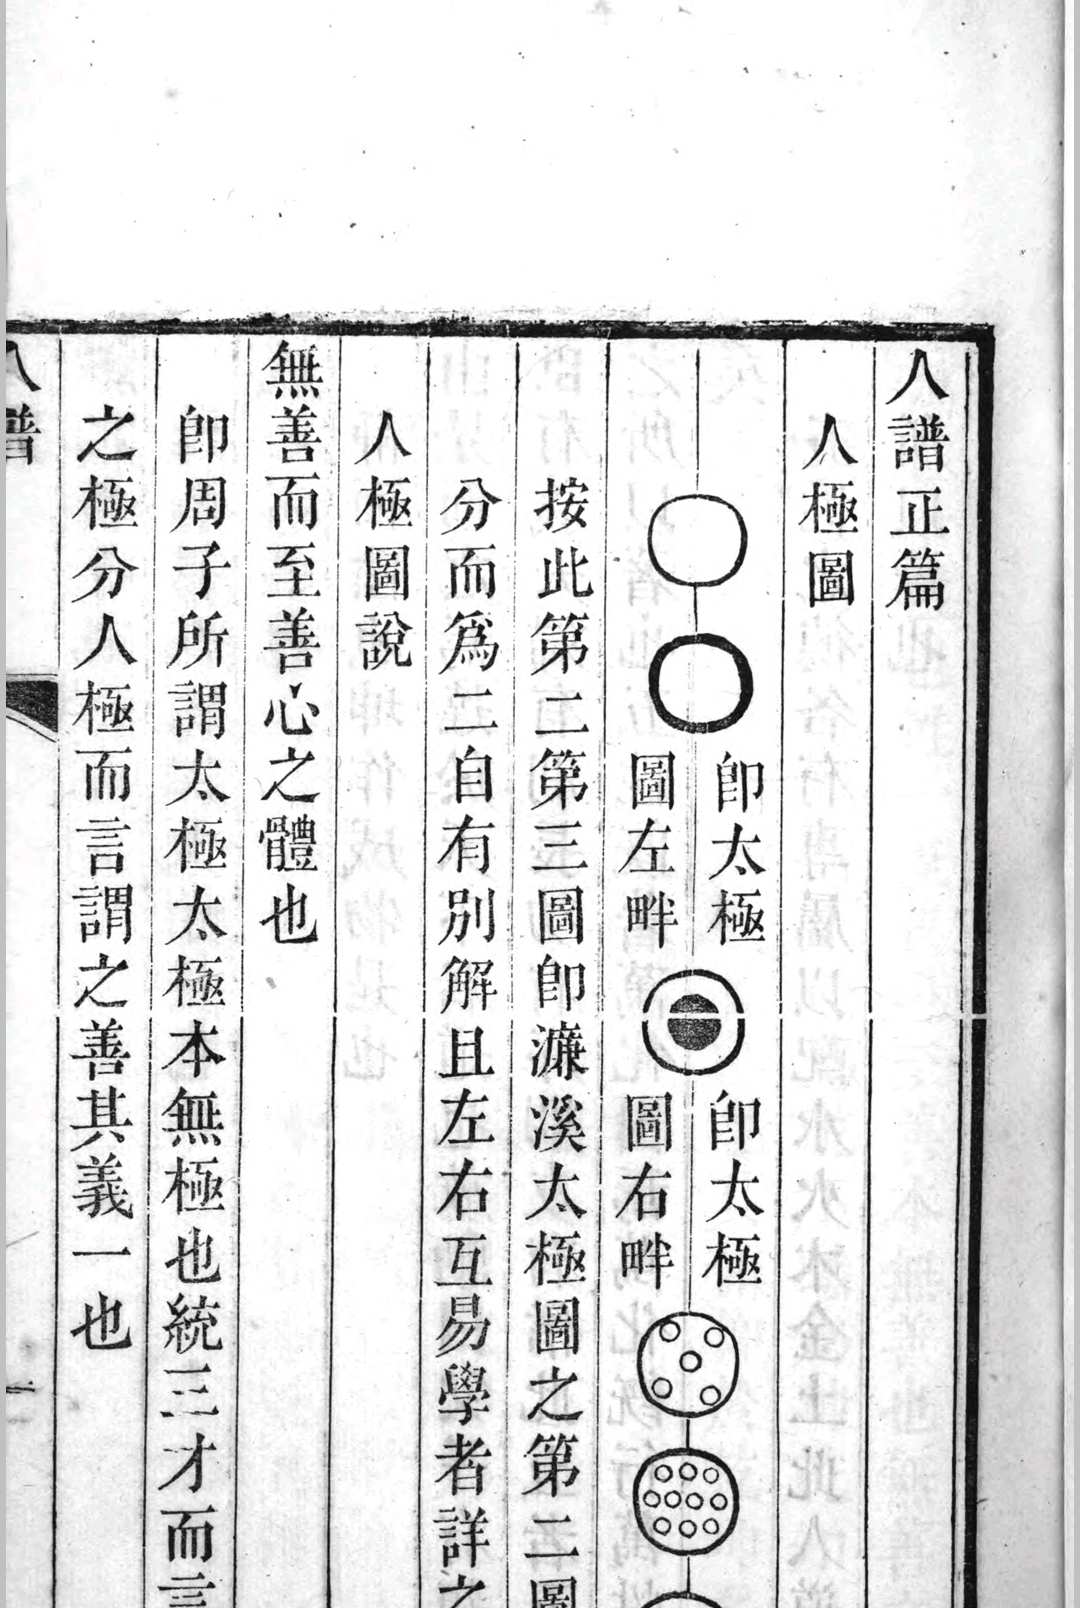 人譜正篇
人極圖
即太極
圖左畔
即太極
圖右畔
按此第二第三圖即濂溪太極圖之第二圖
分而爲二自有別解且左右互易學者詳之
人極圖說
無善而至善心之體也
即周子所謂太極太極本無極也統三才而言
之極分人極而言謂之善其義一也
人譜